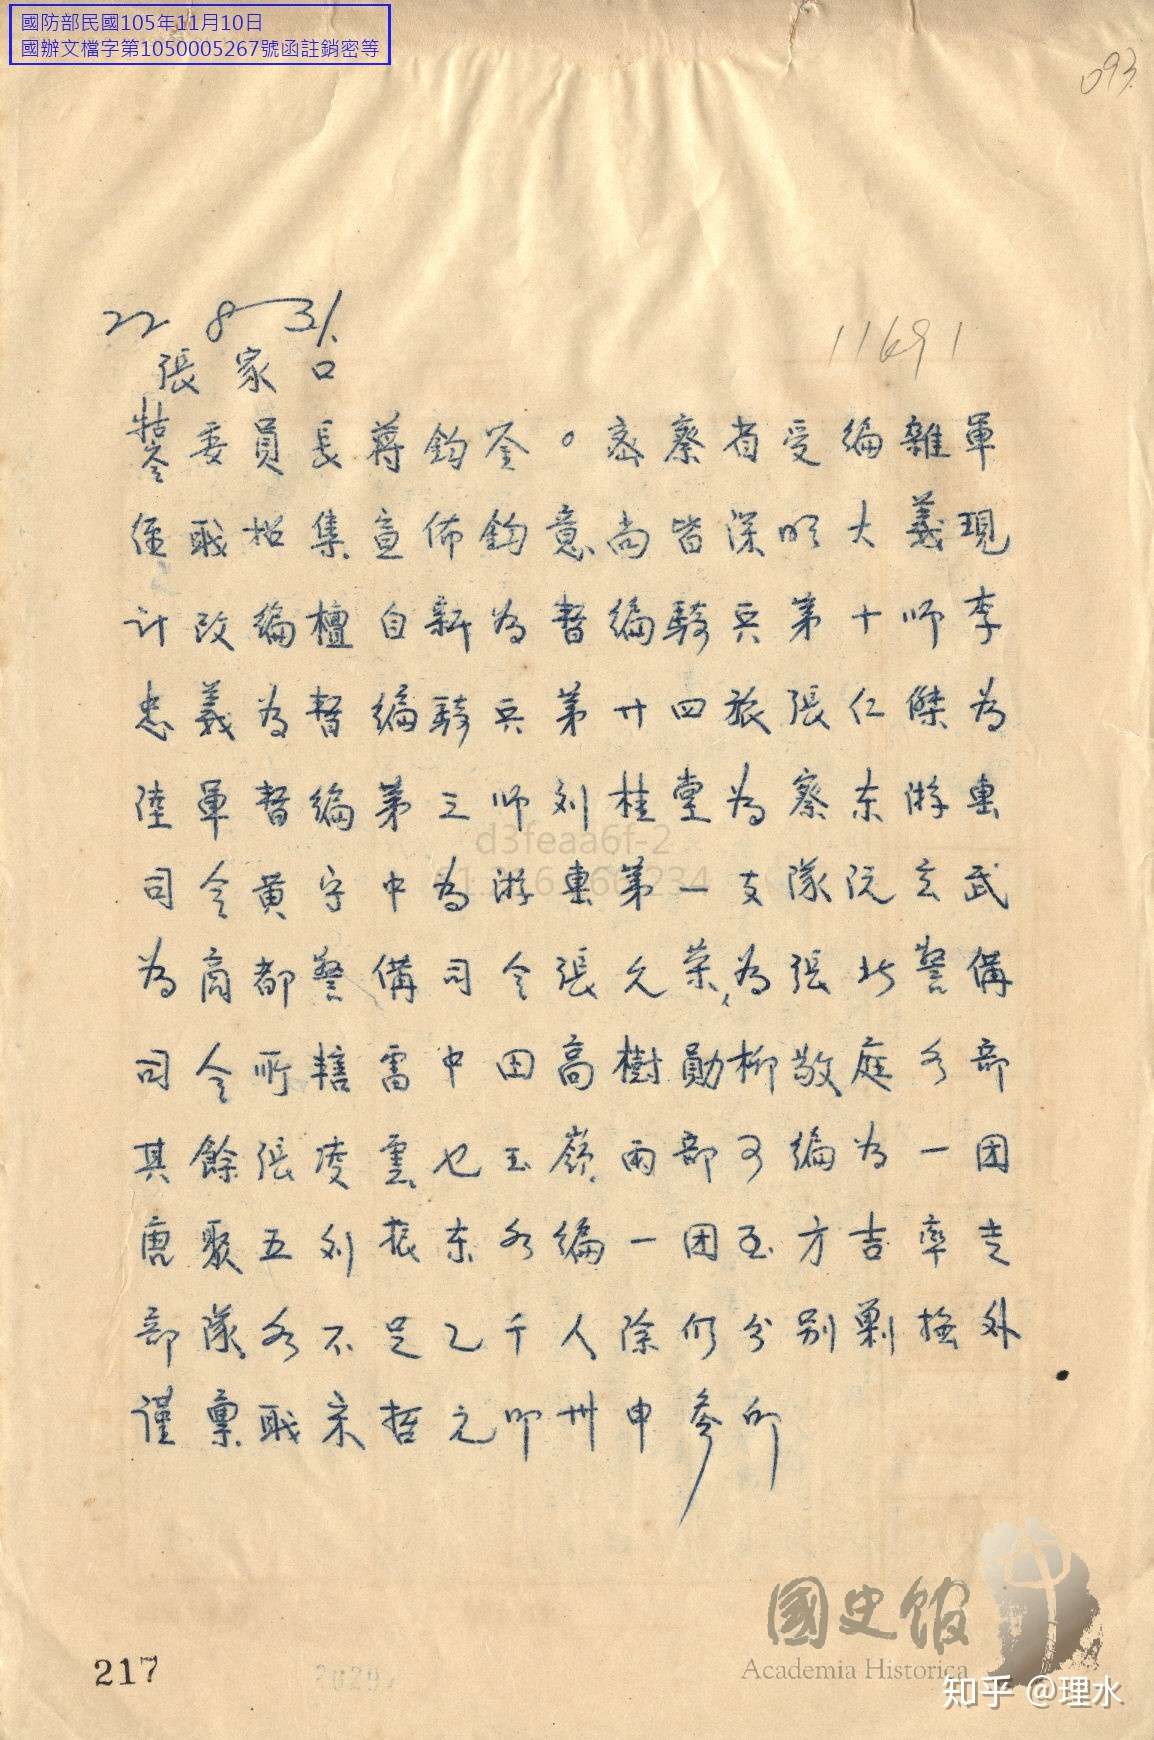 國防部民國105年11月10日
國辦文檔字第1050005267號函註銷密等
093.
22 8 31.
11691
張家口
牯岺委員長蔣鈞鉴。密察省受編雜軍
經職招集宣佈鈞意尚皆深明大義現
計改編檀自新為暂編騎兵第十师李
忠義為暂編騎兵第廿四旅張仁傑為
陸軍暂編第三师刘桂堂為察东游击
司令黄守中為游击第一支隊阮玄武
為商都警備司令張允荣為張北警備
司令所轄雷中田高樹勛柳敬庭各部
其餘張凌雲乜玉嶺兩部可編為一团
唐聚五刘振东各編一团至方吉率走
部隊各不足乙千人除仍分别剿撫外
謹稟職宋哲元叩卅申参印
d3feaa6f-2
國史館
Academia Historica
217
知乎 @理水